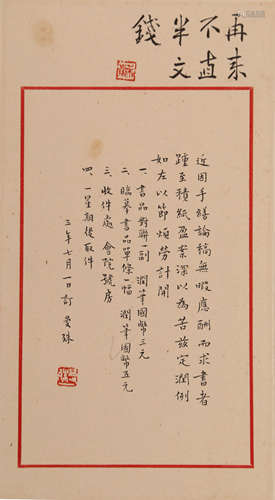 再来
不直
半文
錢
近因手繕論稿無暇應酬而求書者
踵至積紙盈案深以為苦茲定潤例
如左以節煩勞計開
一、書品對聯一副 潤筆國幣三元
二、臨摹書品單條一幅 潤筆國幣五元
三、收件處 會院號房
四、一星期後取件
三年七月一日訂